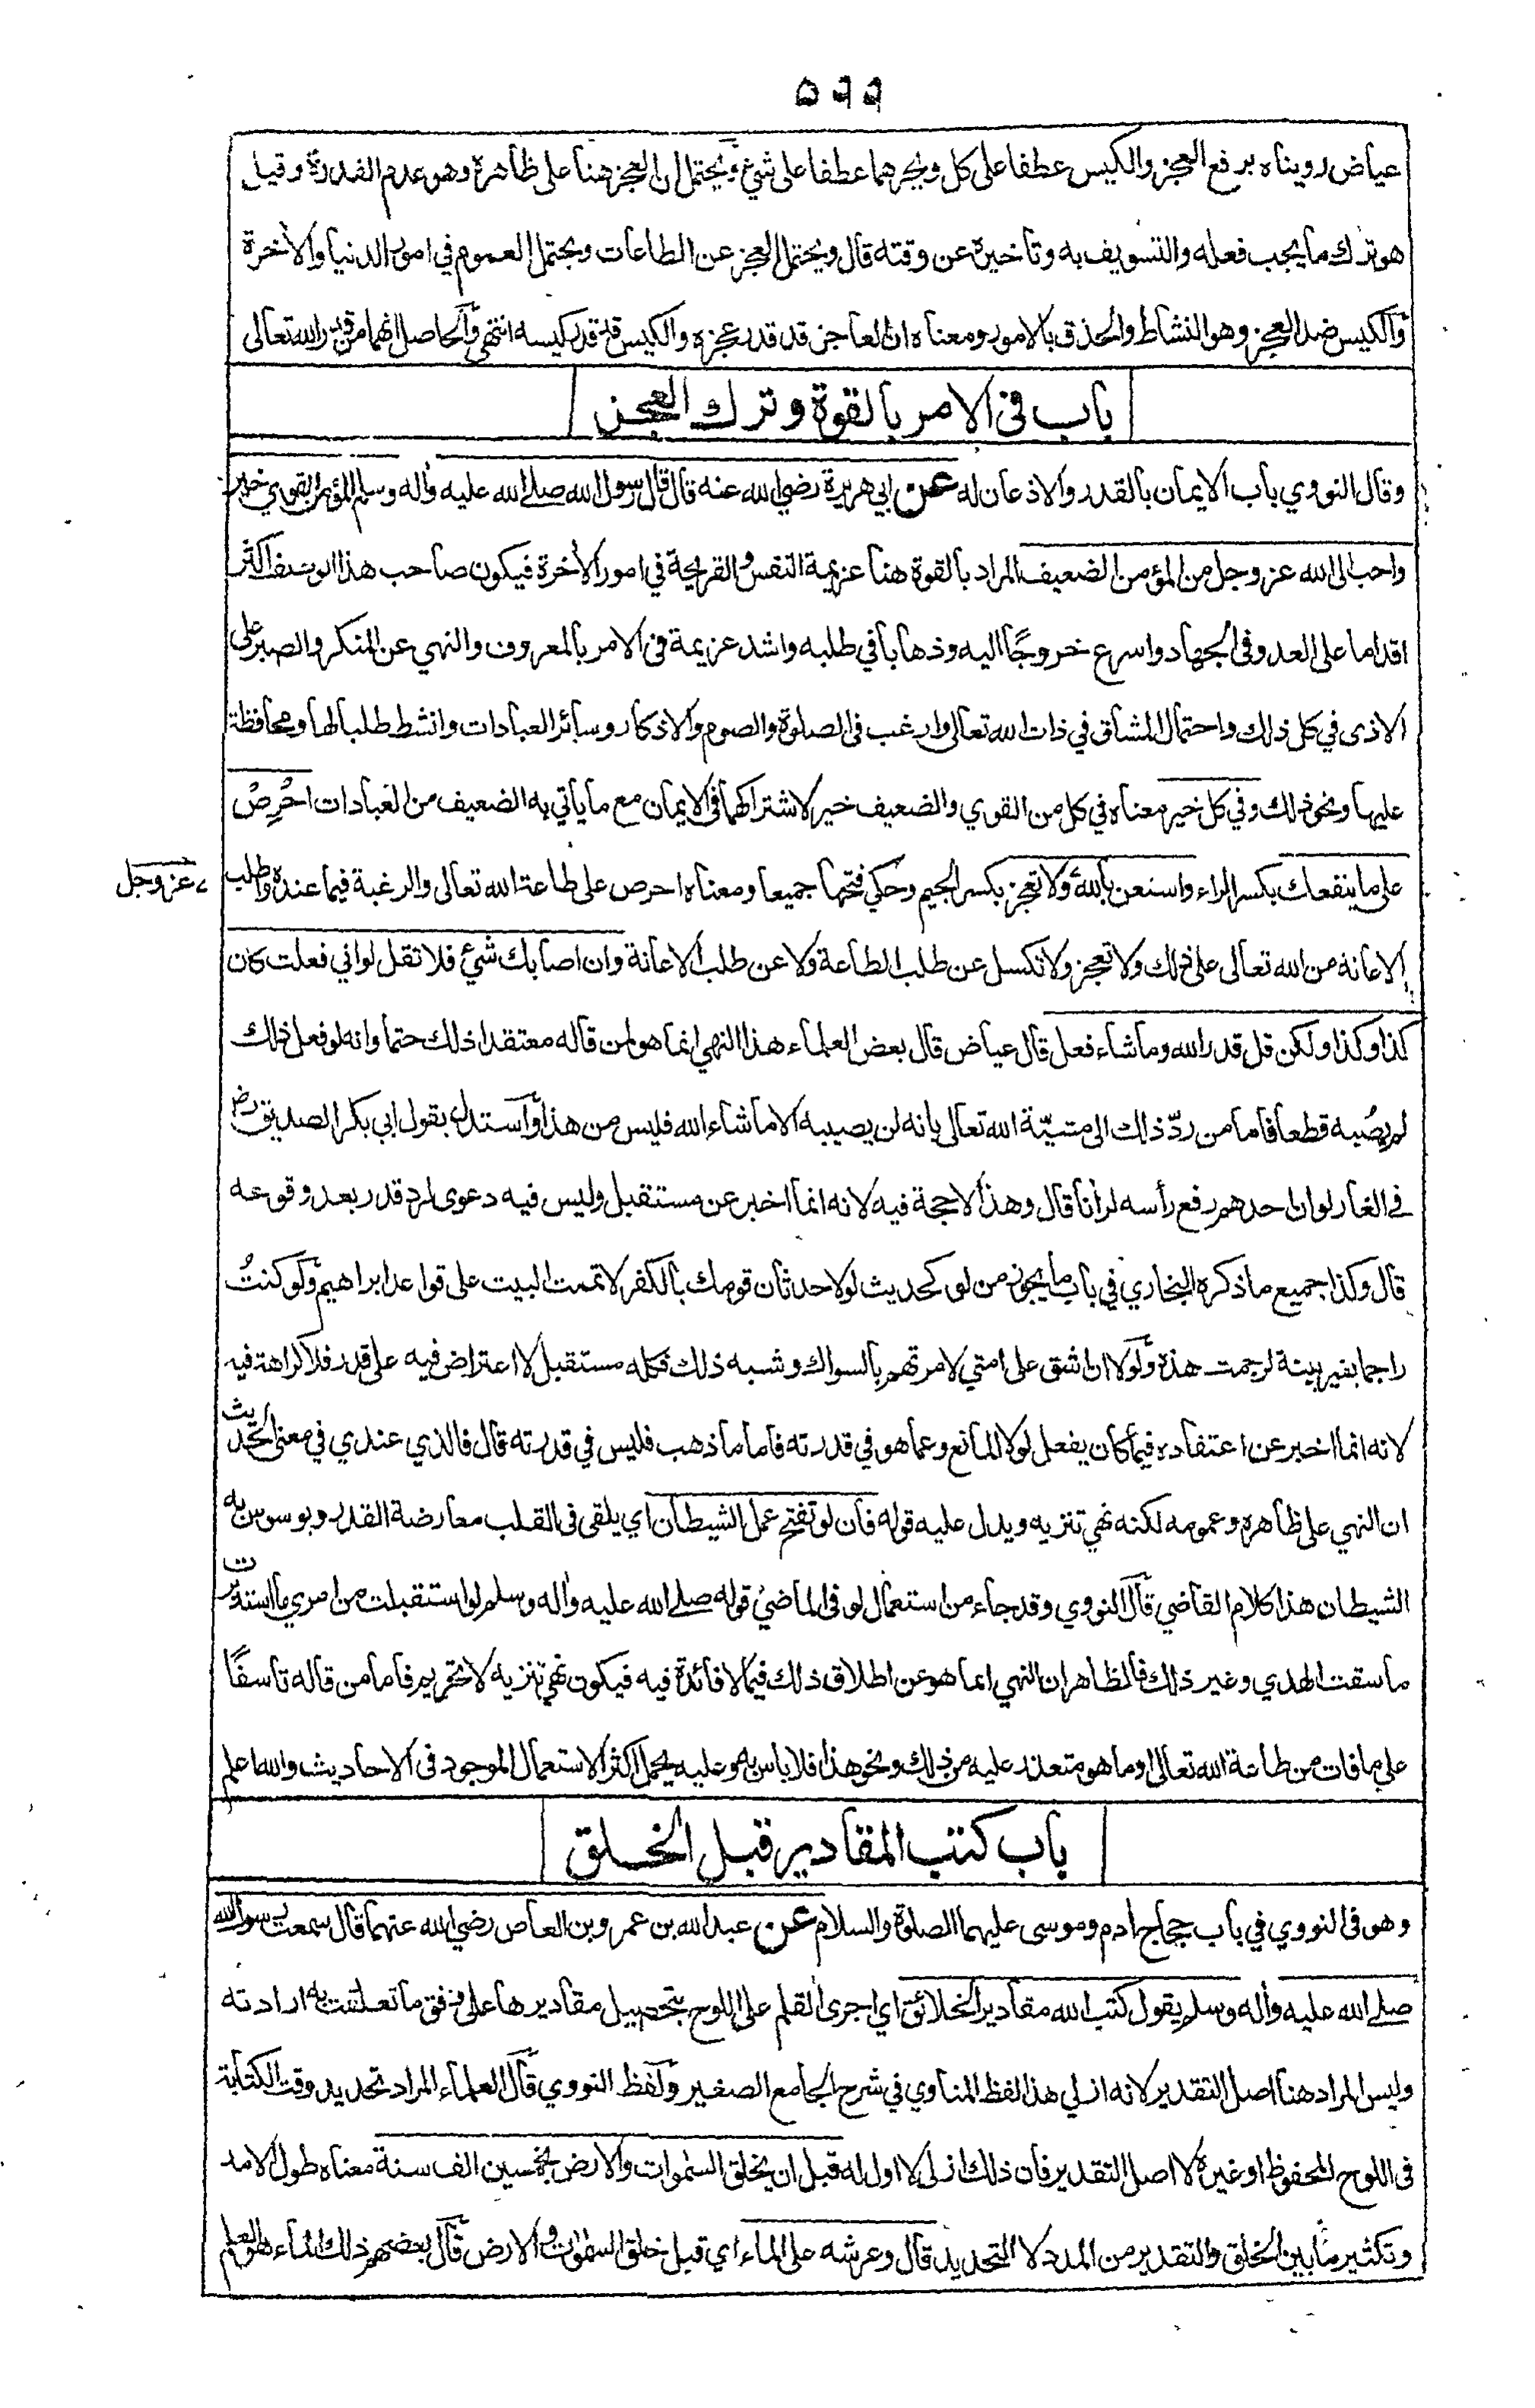 ٥٩٩
عياض رويناه برفع العجز والكيس عطفا على كل وبجرهما عطفا على شئ ويحتمل ان العجز هنا على ظاهره وهو عدم القدرة وقيل
هو ترك ما يجب فعله والتسويف به وتاخيره عن وقته قال ويحتمل العجز عن الطاعات ويحتمل العموم في امور الدنيا والأخرة
والكيس ضد العجز وهو النشاط والحذق بالامور ومعناه ان العاجز قد قدر عجزه والكيس قد قدر كيسه انتهى والحاصل انهما من قدر الله تعالى
باب فى الامر بالقوة وترك العجز
وقال النووي باب الايمان بالقدر والاذعان له عن ابي هريرة رضي الله عنه قال قال رسول الله صلى الله عليه واله وسلم المؤمن القوي خير
واحب الى الله عز وجل من المؤمن الضعيف المراد بالقوة هنا عزيمة النفس والقريحة في امور الأخرة فيكون صاحب هذا الوصف اكثر
اقداما على العدو فى الجهاد واسرع خروجًا اليه وذهابا في طلبه واشد عزيمة فى الامر بالمعروف والنهي عن المنكر والصبر على
الاذى في كل ذلك واحتمال المشاق في ذات الله تعالى وارغب فى الصلوة والصوم والاذكار وسائر العبادات وانشط طلبا لها ومحافظة
عليها ونحو ذلك وفي كل خير معناه في كل من القوي والضعيف خير لاشتراكهما فى الايمان مع ما يأتي به الضعيف من العبادات احْرِصْ
على ما ينفعك بكسر الراء واستعن بالله ولا تعجز بكسر الجيم وحكي فتحها جميعا ومعناه احرص على طاعة الله تعالى والرغبة فيما عنده واطلب
عز وجل
الاعانة من الله تعالى على ذلك ولا تعجز ولا تكسل عن طلب الطاعة ولا عن طلب الاعانة وان اصابك شئ فلا تقل لو اني فعلت كان
كذا وكذا ولكن قل قدر الله وما شاء فعل قال عياض قال بعض العلماء هذا النهي انما هو لمن قاله معتقدا ذلك حتما وانه لو فعل ذلك
لم يصبه قطعا فاما من ردّ ذلك الى مشيّة الله تعالى بانه لن يصيبه الا ما شاء الله فليس من هذا واستدل بقول ابي بكر الصديق رض
في الغار لو ان احدهم رفع رأسه لرأنا قال وهذا لا حجة فيه لانه انما اخبر عن مستقبل وليس فيه دعوى لرد قدر بعد وقوعه
قال وكذا جميع ما ذكره البخاري في باب ما يجوز من لو كحديث لولا حدثان قومك بالكفر لاتممت البيت على قواعد ابراهيم ولو كنتُ
راجما بغير بينة لرجمت هذه ولولا ان اشق على امتي لامرتهم بالسواك وشبه ذلك فكله مستقبل لا اعتراض فيه على قدر فلا كراهة فيه
لانه انما اخبر عن اعتقاده فيما كان يفعل لولا المانع وعما هو في قدرته فاما ما ذهب فليس في قدرته قال فالذي عندي في معنى الحديث
ان النهي على ظاهره وعمومه لكنه نهي تنزيه ويدل عليه قوله فان لو تفتح عمل الشيطان اي يلقى فى القلب معارضة القدر ويوسوس به
الشيطان هذا كلام القاضي قال النووي وقد جاء من استعمال لو فى الماضي قوله صلى الله عليه واله وسلم لو استقبلت من امري ما استدبرت
ما سقت الهدي وغير ذلك فالظاهر ان النهي انما هو عن اطلاق ذلك فيما لا فائدة فيه فيكون نهي تنزيه لا تحريم فاما من قاله تاسفًا
على ما فات من طاعة الله تعالى او ما هو متعذر عليه من ذلك ونحو هذا فلا باس به وعليه يحمل اكثر الاستعمال الموجود فى الاحاديث والله اعلم
باب كتب المقادير قبل الخلق
وهو فى النووي في باب حجاج ادم وموسى عليهما الصلوة والسلام عن عبد الله بن عمرو بن العاص رضي الله عنهما قال سمعت رسول الله
صلى الله عليه واله وسلم يقول كتب الله مقادير الخلائق اي اجرى القلم على اللوح بتحصيل مقاديرها على وفق ما تعلقت به ارادته
وليس المراد هنا اصل التقدير لانه ازلي هذا لفظ المناوي في شرح الجامع الصغير ولفظ النووي قال العلماء المراد تحديد وقت الكتابة
فى اللوح المحفوظ او غيره لا اصل التقدير فان ذلك ازلى لا اول له قبل ان يخلق السموات والارض بخمسين الف سنة معناه طول الامد
وتكثير ما بين الخلق والتقدير من المدد لا التحديد قال وعرشه على الماء اي قبل خلق السموات والارض قال بعضهم ذلك الماء هو العلم